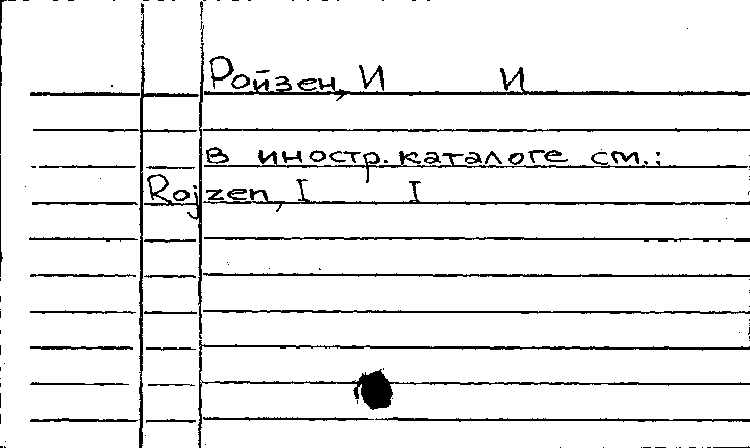 Ройзен, И И
в иностр. каталоге см.:
Rojzen, I I